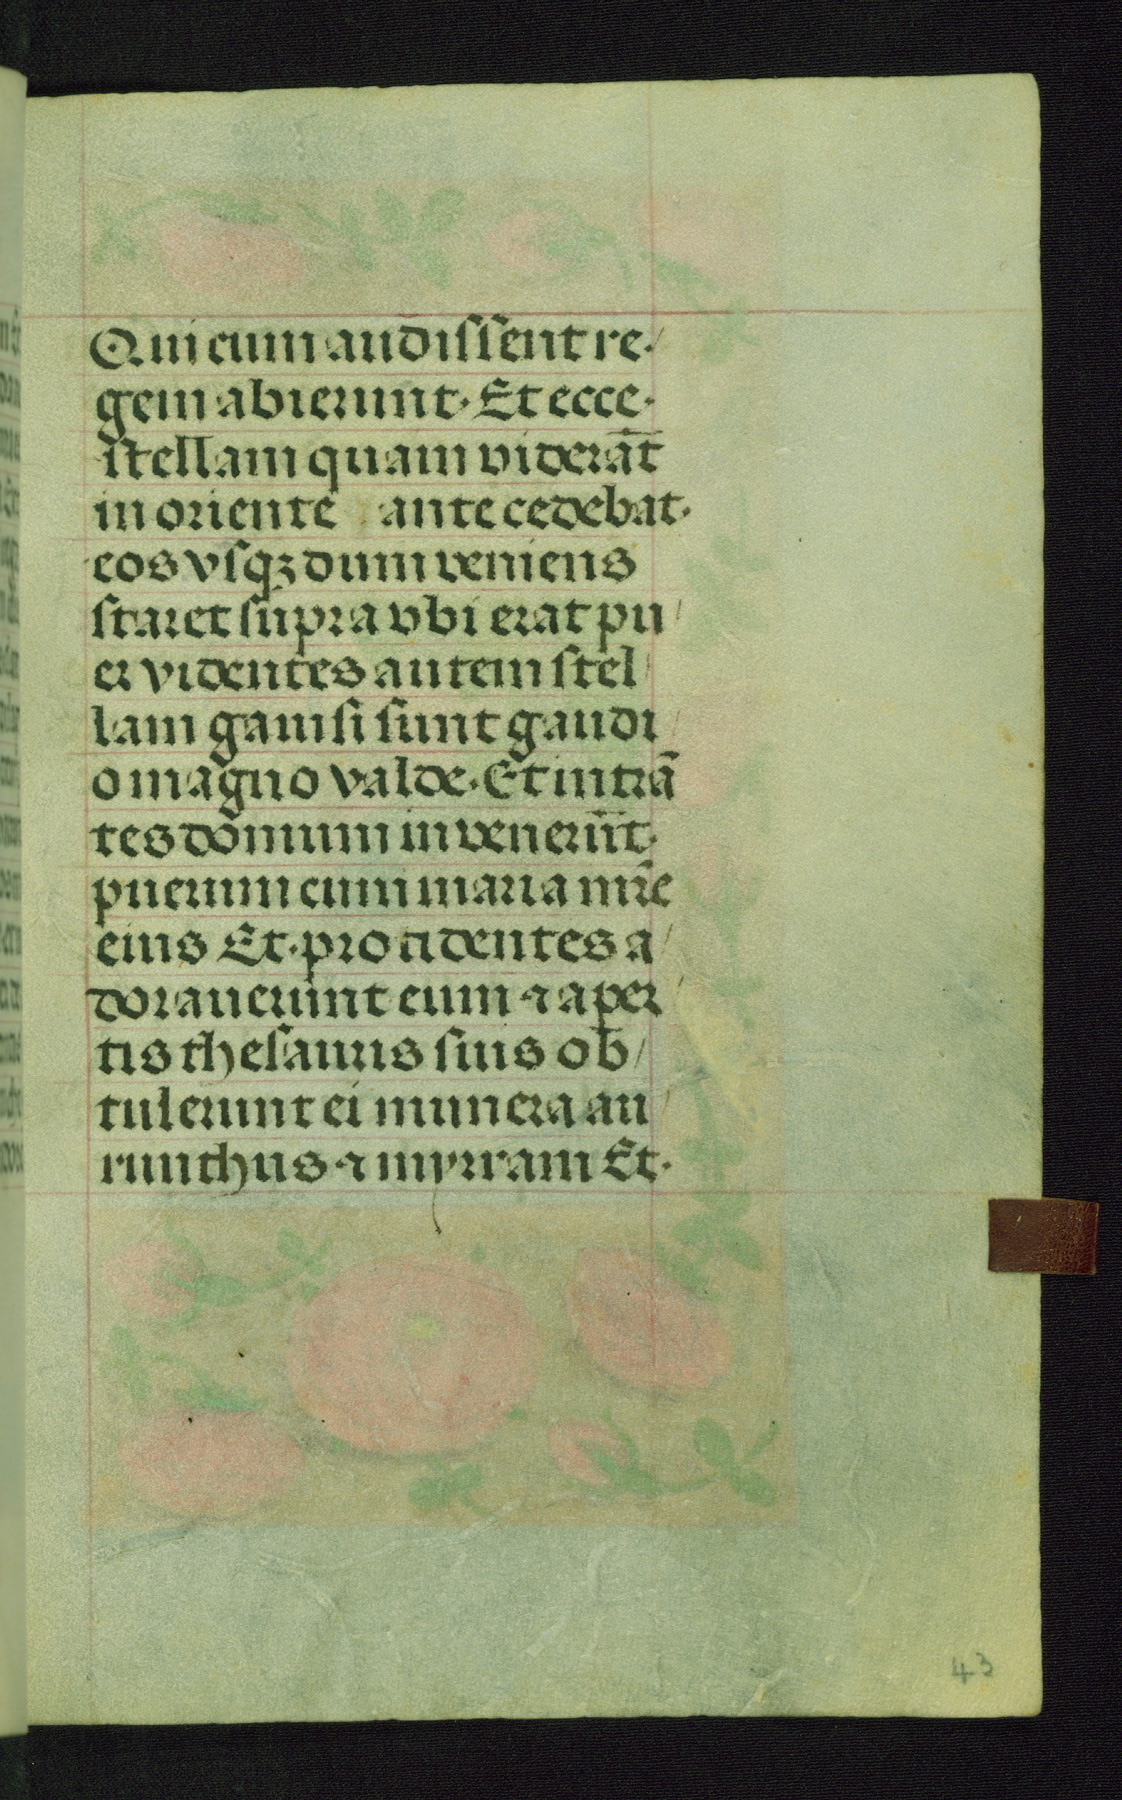 Qui cum audissent re·
gem abierunt· Et ecce·
stellam quam viderāt
in oriente antecedebat·
eos vsqꝫ dum veniens
staret supra vbi erat pu/
er videntes autem stel/
lam gauisi sunt gaudi/
o magno valde· Et intrā
tes domum invenerūt·
puerum cum maria mr̄e
eius Et· procidentes a/
dorauerunt eum ⁊ aper/
tis thesauris suis ob/
tulerunt ei munera au/
rum thus ⁊ myrram Et·
43